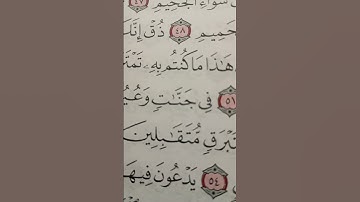 سَوَآءِ ٱلْجَحِيمِ ٤٧
حَمِيمِ ٤٨ ذُقْ إِنَّكَ
هَٰذَا مَا كُنتُم بِهِۦ تَمْتَر
٥١ فِى جَنَّٰتٍ وَعُيُو
تَبْرَقٍ مُّتَقَٰبِلِينَ
٥٤ يَدْعُونَ فِيهَا